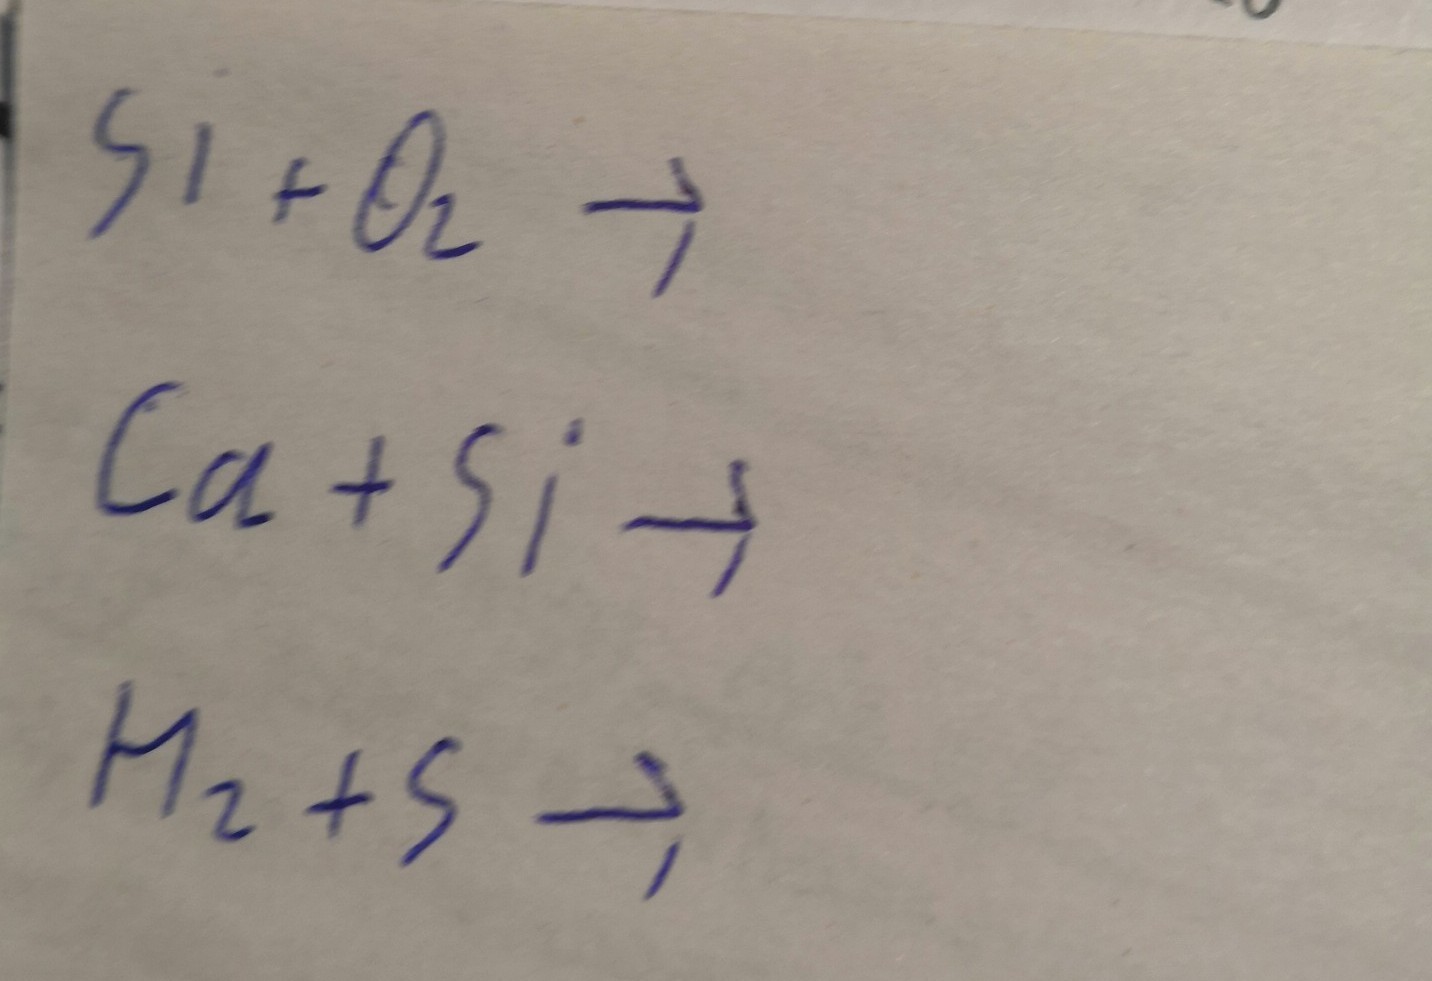 Si + O₂ →
Ca + Si →
H₂ + S →